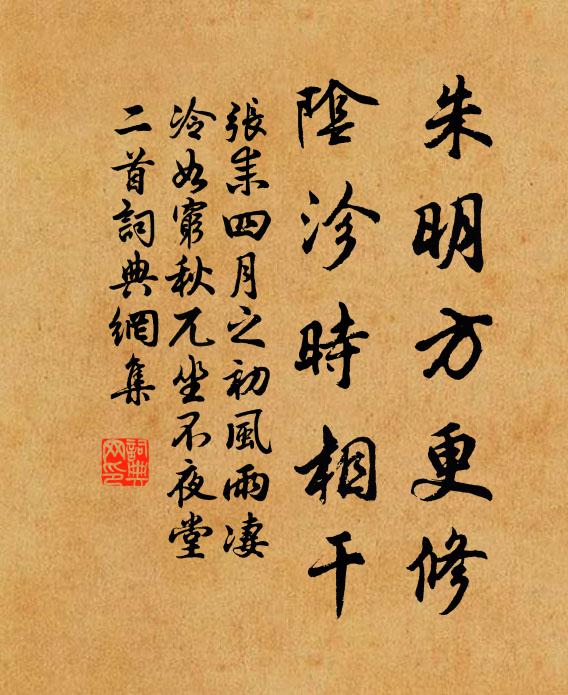 朱明方更修
陰沴時相干
張耒四月之初風雨凄
冷如窮秋兀坐不夜堂
二首詞典網集
詞典网印